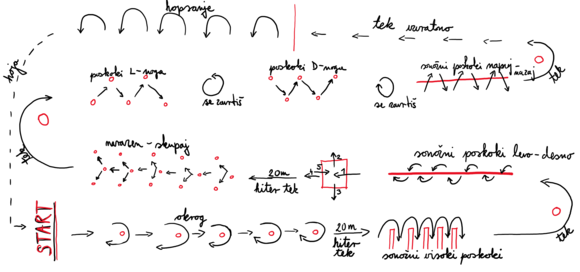 hopsanje
tek vzvratno
hoja
poskoki L-noga
se zavrtiš
poskoki D-noga
se zavrtiš
sonožni poskoki naprej-nazaj
tek
narazen - skupaj
20m
hiter tek
5
2
4
1
3
sonožni poskoki levo-desno
tek
START
okrog
20m
hiter
tek
sonožni visoki poskoki
tek